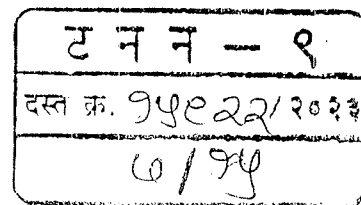 ट न न - ९
दस्त क्र. १५९२२/२०२३
७/१५